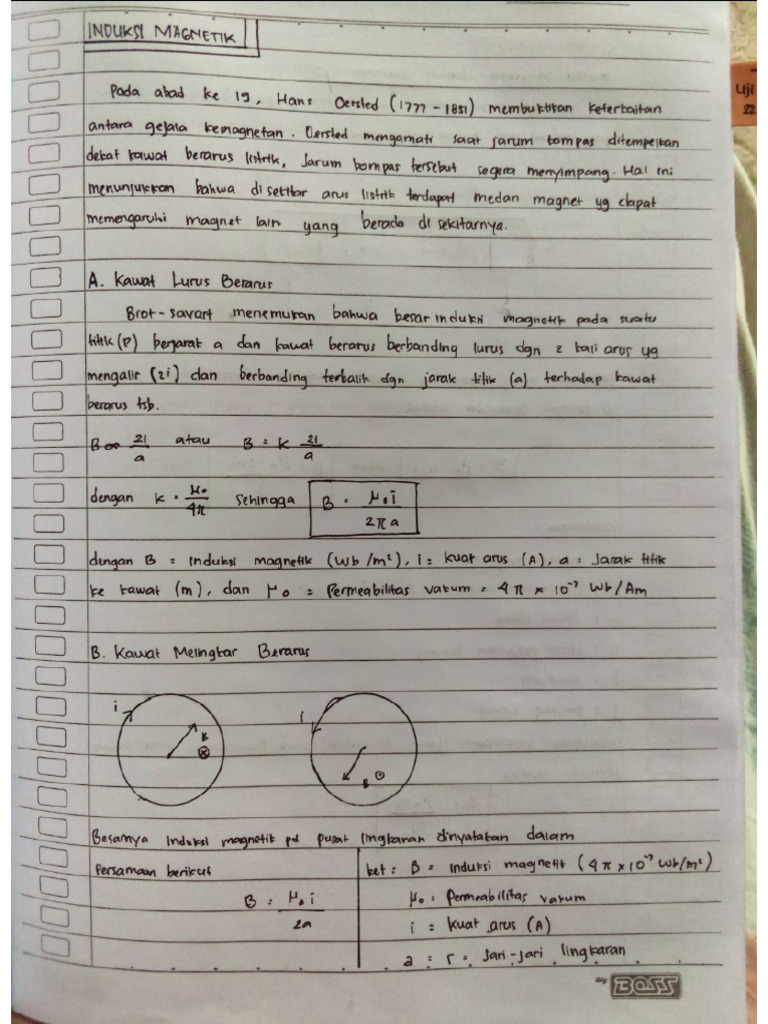 INDUKSI MAGNETIK
Uji
22
Pada abad ke 19, Hans Oersted (1777 - 1851) membuktikan keterkaitan
antara gejala kemagnetan. Oersted mengamati saat jarum kompas ditempelkan
dekat kawat berarus listrik, Jarum kompas tersebut segera menyimpang. Hal ini
menunjukkan bahwa di sekitar arus listrik terdapat medan magnet yg dapat
memengaruhi magnet lain yang berada di sekitarnya.
A. Kawat Lurus Berarus
Biot-savart menemukan bahwa besar induksi magnetik pada suatu
titik (P) berjarak a dan kawat berarus berbanding lurus dgn 2 kali arus yg
mengalir (2i) dan berbanding terbalik dgn jarak titik (a) terhadap kawat
berarus tsb.
B ∞ 2I/a atau B = k 2I/a
dengan k = μ₀/4π sehingga B = μ₀i/2πa
dengan B = Induksi magnetik (Wb/m²), i = kuat arus (A), a = Jarak titik
ke kawat (m), dan μ₀ = Permeabilitas vakum = 4π × 10⁻⁷ Wb/Am
B. Kawat Melingkar Berarus
i
B
i
B
Besarnya Induksi magnetik pd pusat lingkaran dinyatakan dalam
Persamaan berikut
B = μ₀i/2a
ket: B = Induksi magnetik (4π×10⁻⁷ Wb/m²)
μ₀ = Permeabilitas vakum
i = kuat arus (A)
a = r = Jari-jari lingkaran
By BOSS